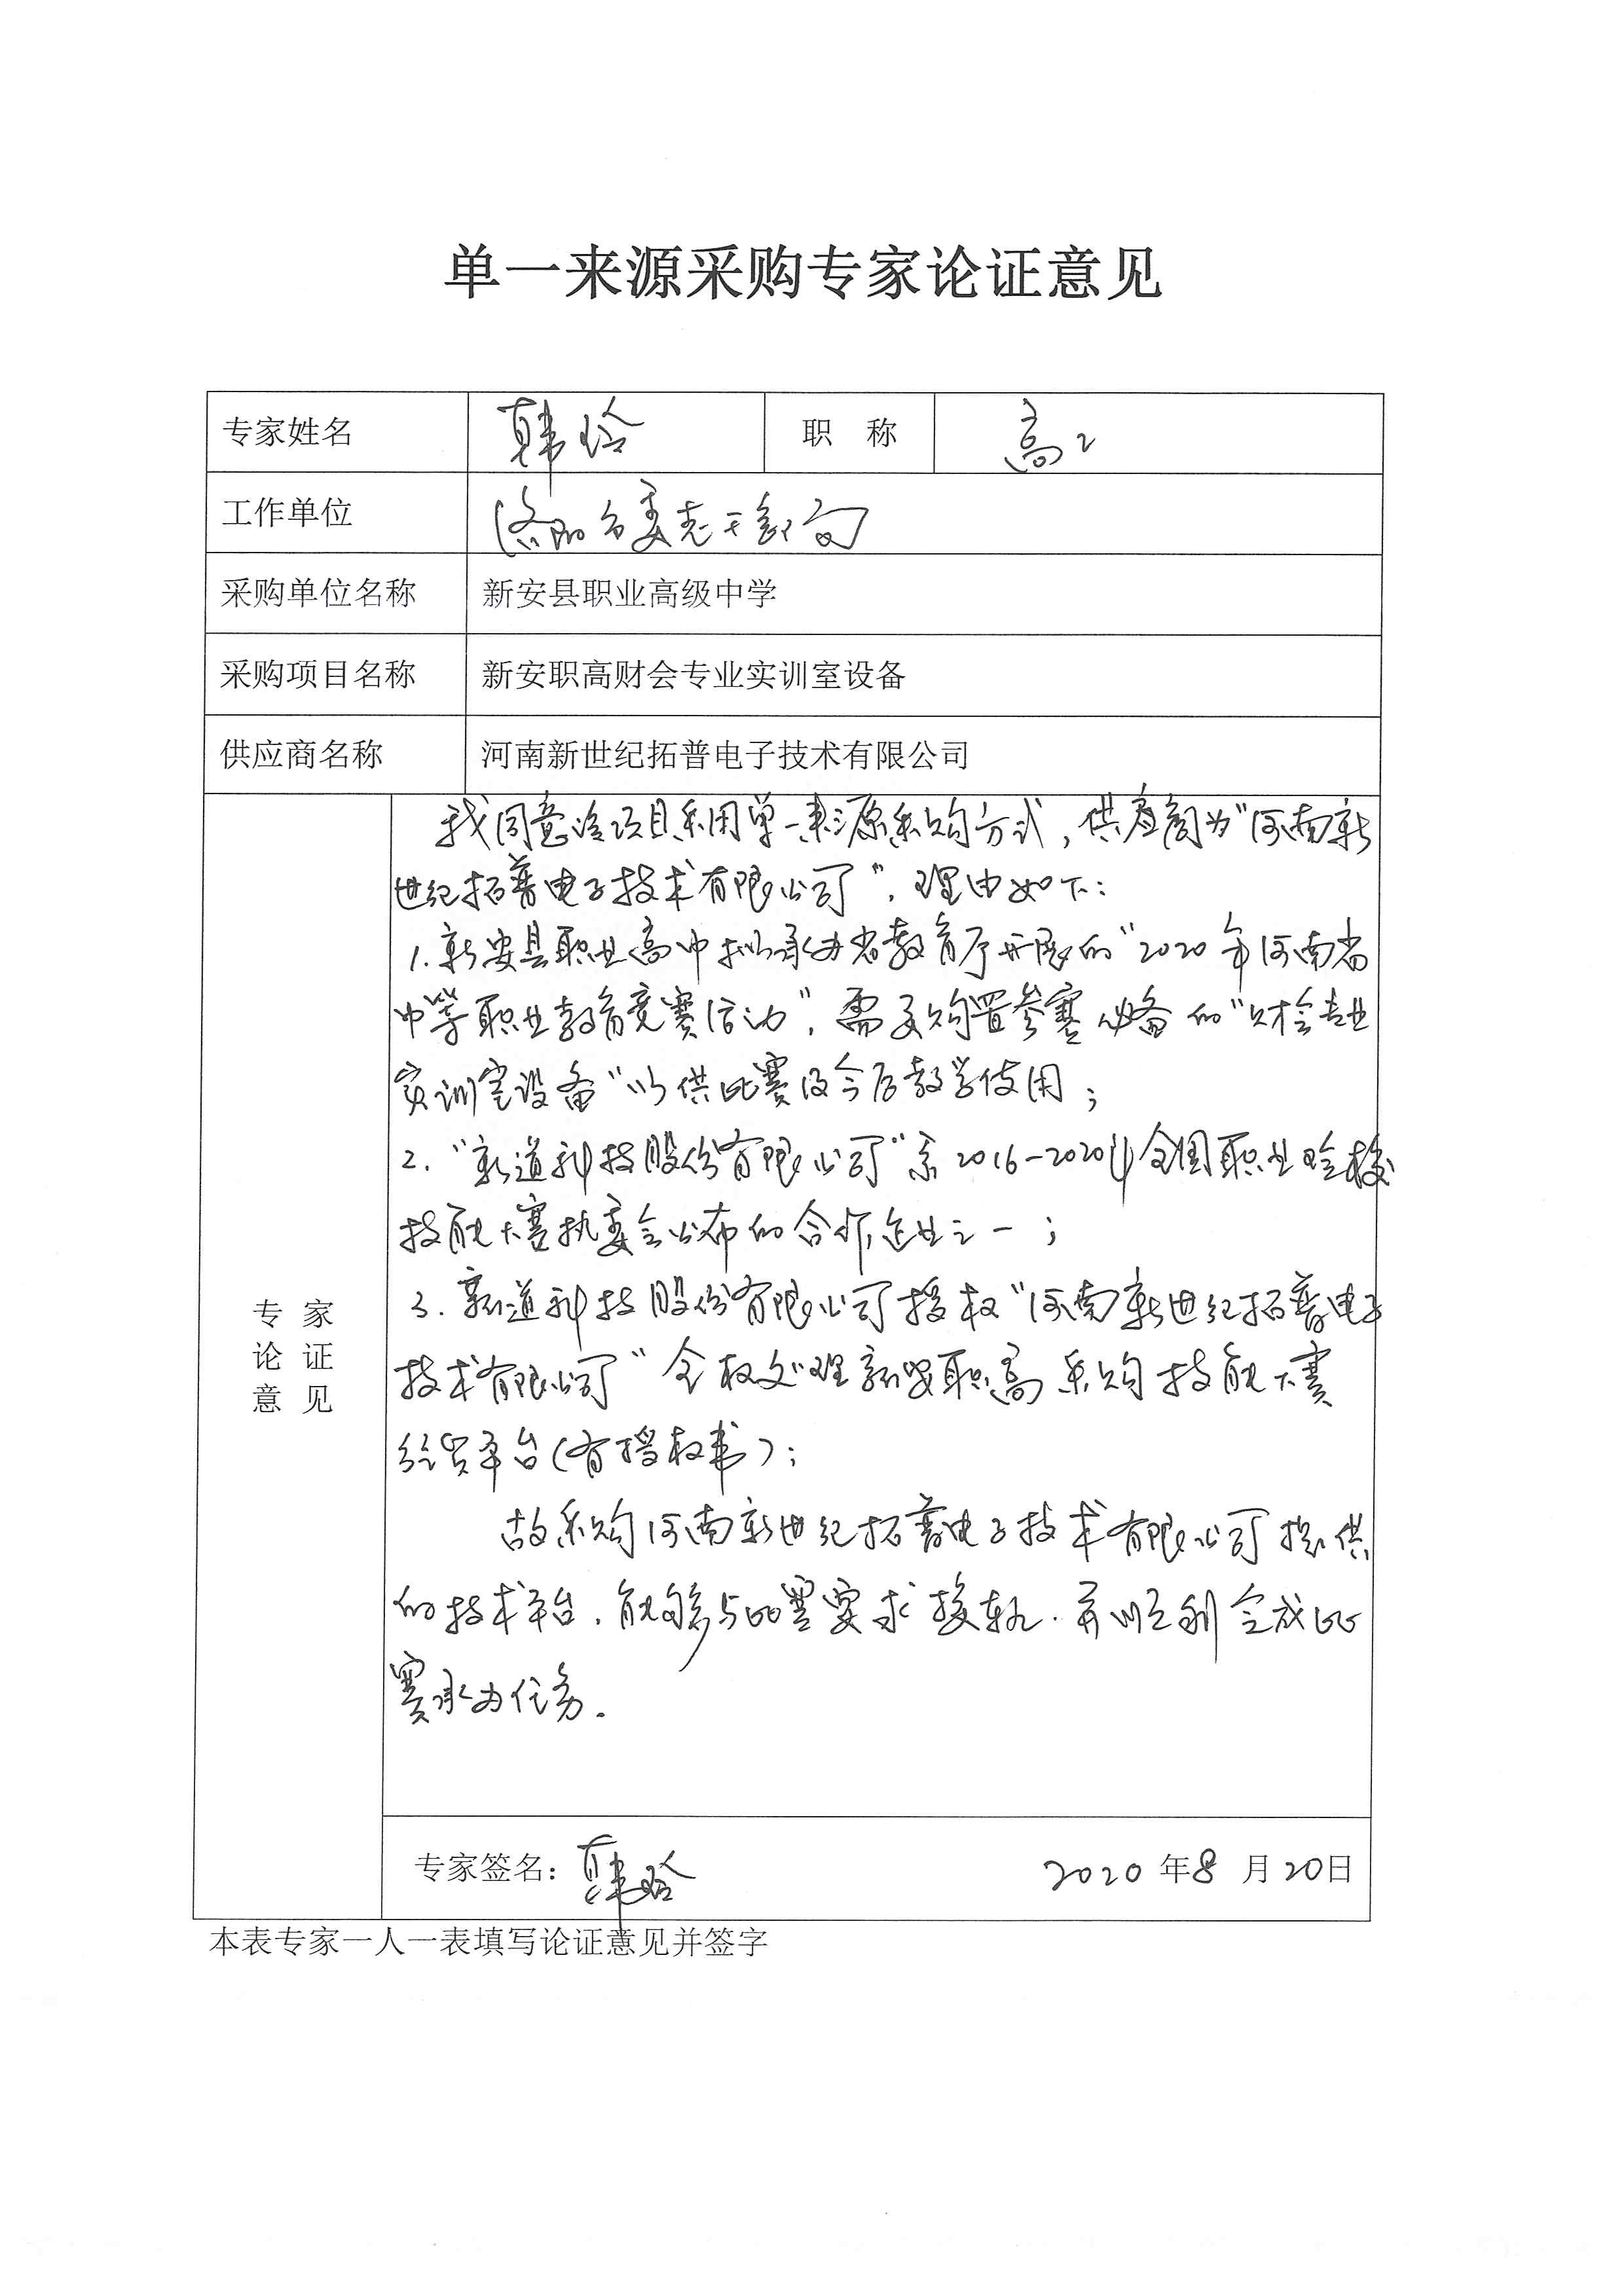 单一来源采购专家论证意见
专家姓名 韩玲 职 称 高工
工作单位 洛阳市委老干部局
采购单位名称 新安县职业高级中学
采购项目名称 新安职高财会专业实训室设备
供应商名称 河南新世纪拓普电子技术有限公司
我同意该项目采用单一来源采购方式，供应商为“河南新
世纪拓普电子技术有限公司”，理由如下：
1.新安县职业高中拟承办省教育厅开展的“2020年河南省
中等职业教育竞赛活动”，需要购置参赛必备的“财会专业
实训室设备”以供比赛及今后教学使用；
2.“新道科技股份有限公司”系2016-2020年全国职业院校
技能大赛执委会公布的合作企业之一；
3.新道科技股份有限公司授权“河南新世纪拓普电子
技术有限公司”全权处理新安职高采购技能大赛
经贸平台（有授权书）；
故采购河南新世纪拓普电子技术有限公司提供
的技术平台，能够与比赛要求接轨，并顺利完成比
赛承办任务。
专 家
论 证
意 见
专家签名：韩玲 2020年8月20日
本表专家一人一表填写论证意见并签字